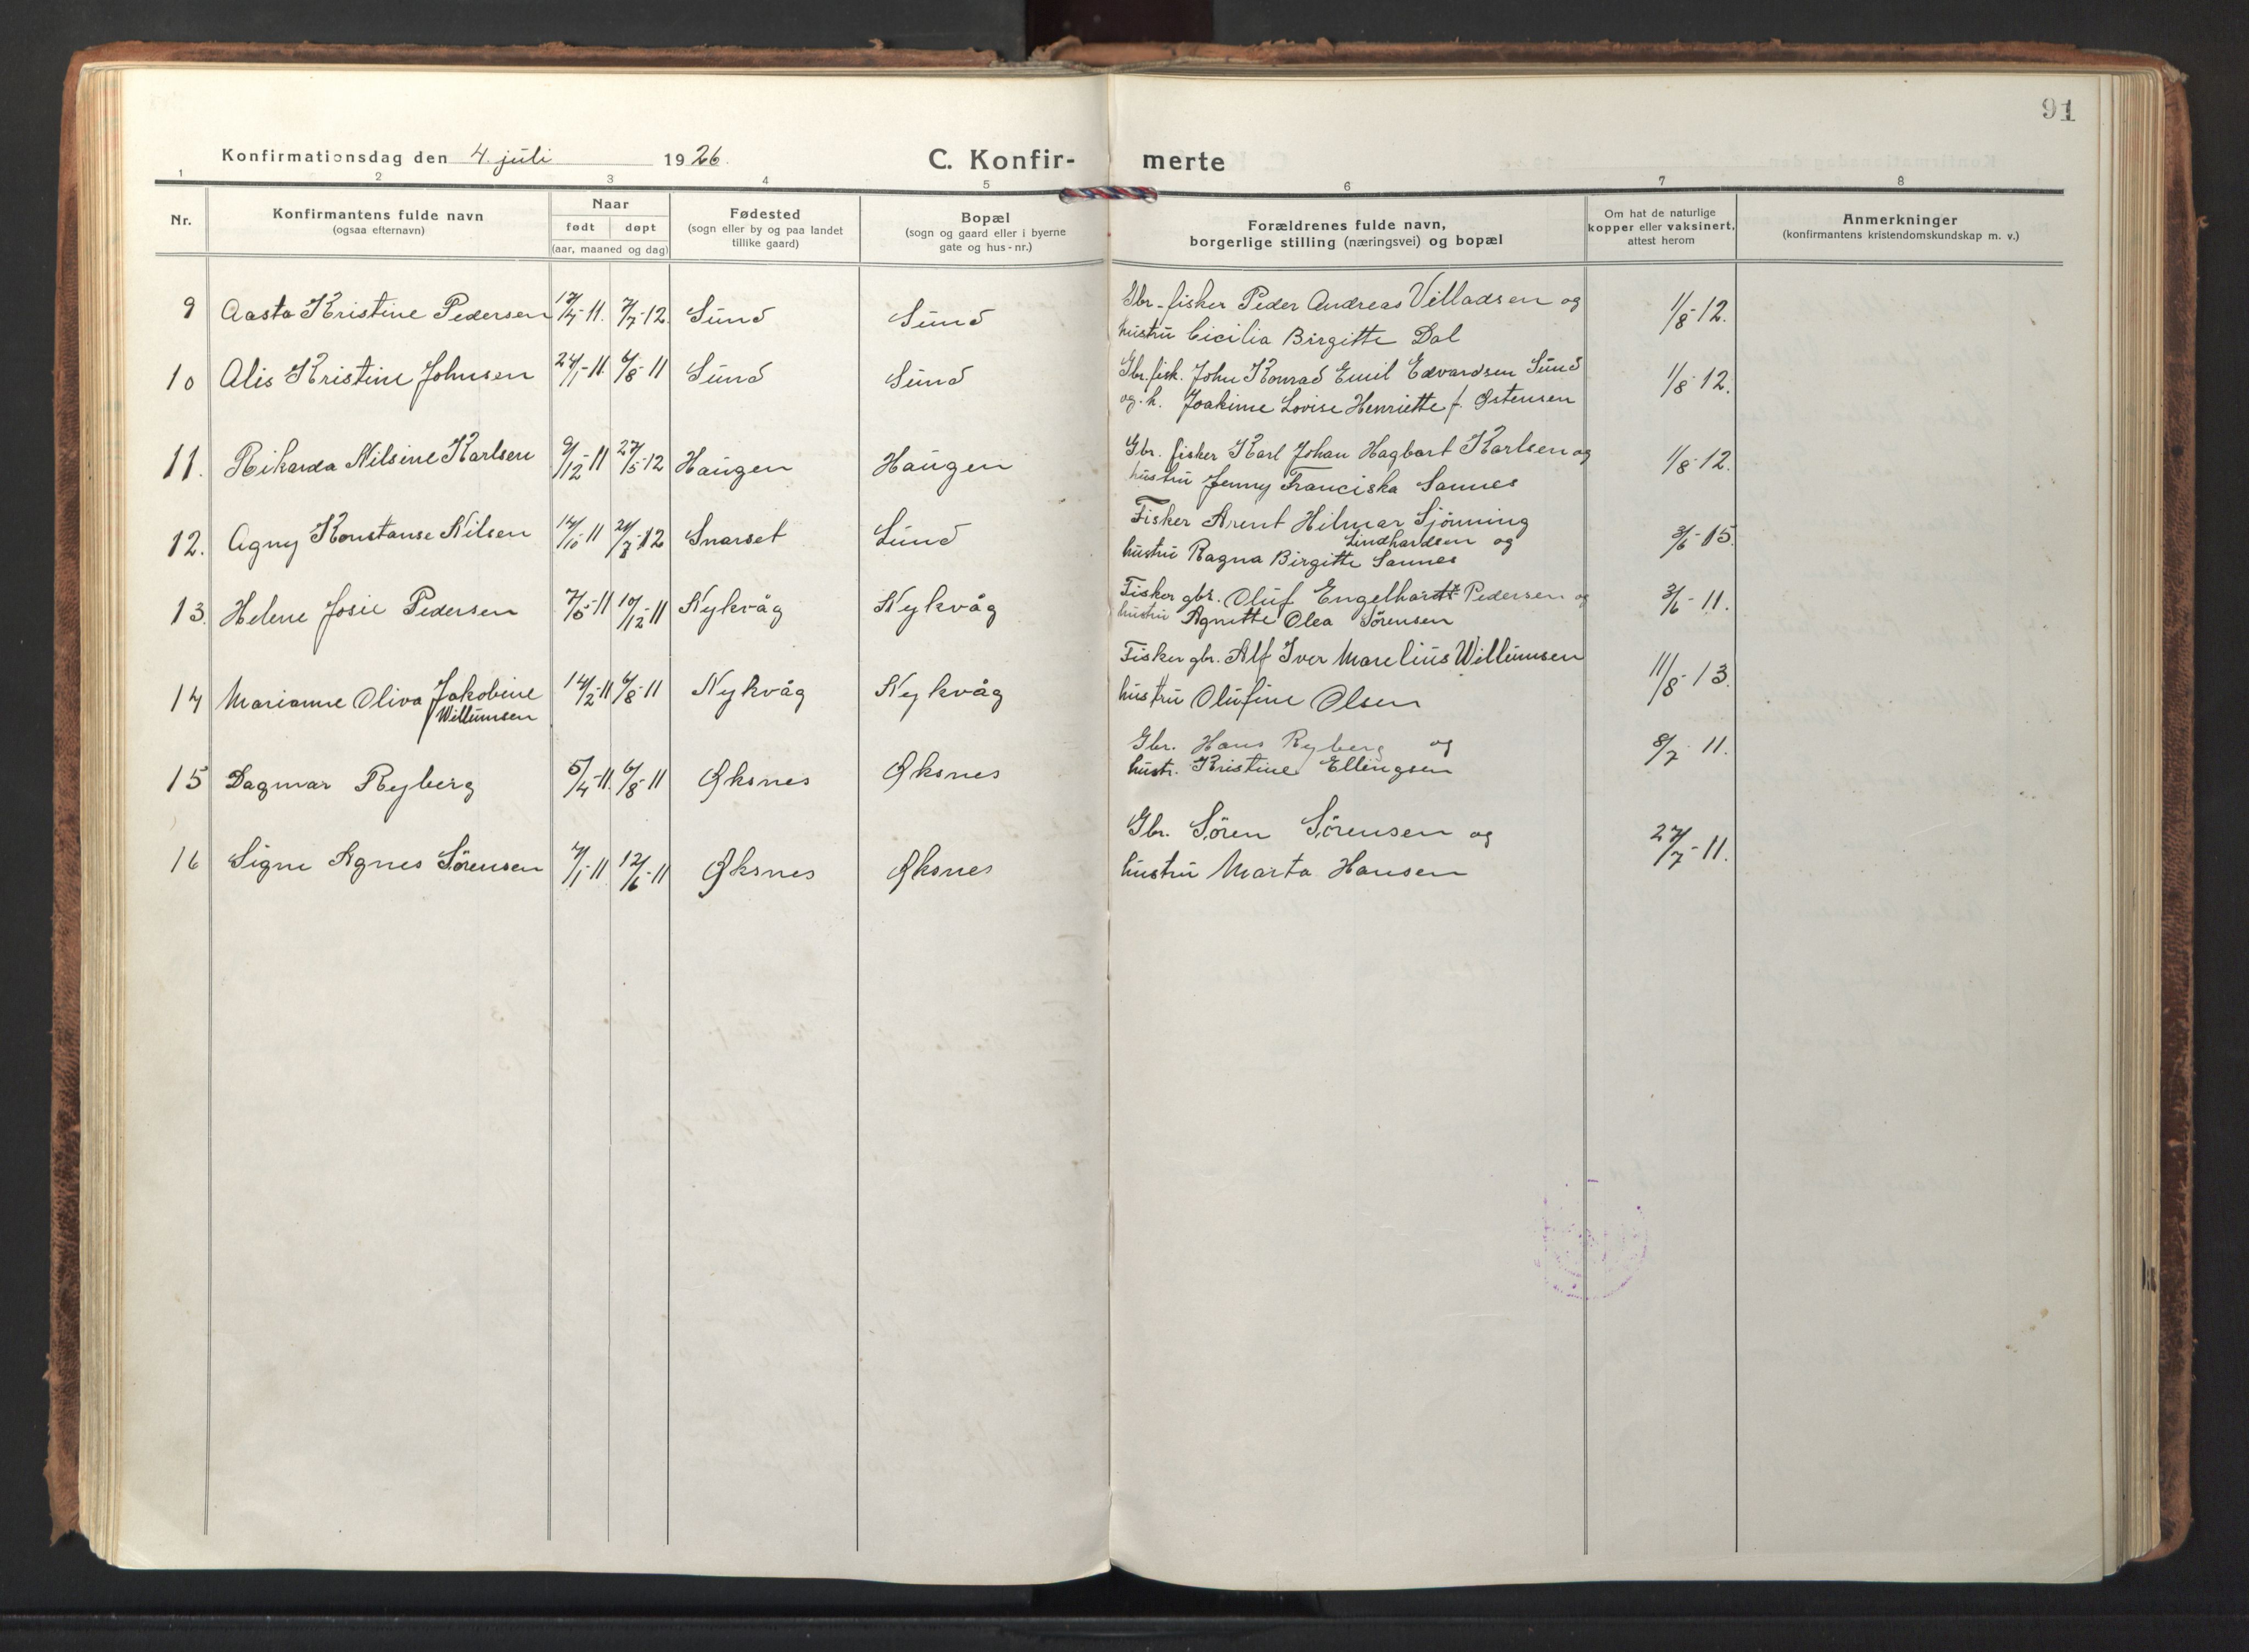 91
Konfirmationsdag den 4. juli 1926.
C. Konfir- merte
1 2 3 4 5 6 7 8
Nr.
Konfirmantens fulde navn
(ogsaa efternavn)
Naar
født døpt
(aar, maaned og dag)
Fødested
(sogn eller by og paa landet
tillike gaard)
Bopæl
(sogn og gaard eller i byerne
gate og hus-nr.)
Forældrenes fulde navn,
borgerlige stilling (næringsvei) og bopæl
Om hat de naturlige
kopper eller vaksinert,
attest herom
Anmerkninger
(konfirmantens kristendomskundskap m. v.)
9 Aasta Kristine Pedersen 17/4-11. 7/7-12. Sund Sund
Gbr-fisker Peder Andreas Villadsen og
hustru Cicilia Birgitte Dal
1/8-12.
10 Alis Kristine Johnsen 24/1-11. 6/8-11 Sund Sund
Gbr. fisk. John Konrad Emil Edvardsen Sund
og h. Joakime Lovise Henriette f. Østensen
1/8-12.
11. Rikarda Nilsine Karlsen 9/12-11 27/5-12 Haugen Haugen
Gbr. fisker Karl Johan Hagbart Karlsen og
hustru Jenny Franciska Sannes
1/8-12.
12. Agny Konstanse Nilsen 14/10-11 Snarset Sund
Fisker Arent Hilmar Sjönning
Lindhardsen og
hustru Ragna Birgitte Sannes
3/6-15.
13. Helene Josie Pedersen 7/5-11 10/12-11 Nykvåg Nykvåg
Fisker gbr. Oluf Engelhardt Pedersen og
hustru Agnette Olea Sørensen
3/6-11.
14 Marianne Oliva Jakobine
Willumsen
14/2-11 6/8-11 Nykvåg Nykvåg
Fisker gbr. Alf Iver Marelius Willumsen
hustru Olufine Olsen
11/8-13.
15 Dagmar Ryberg 5/4-11. 6/8-11 Øksnes Øksnes
Gbr. Hans Ryberg og
hustr. Kristine Ellingsen
8/7-11.
16 Signe Agnes Sörensen 7/1-11 12/6-11 Øksnes Øksnes
Gbr. Sören Sörensen og
hustru Marta Hansen
27/7-11.